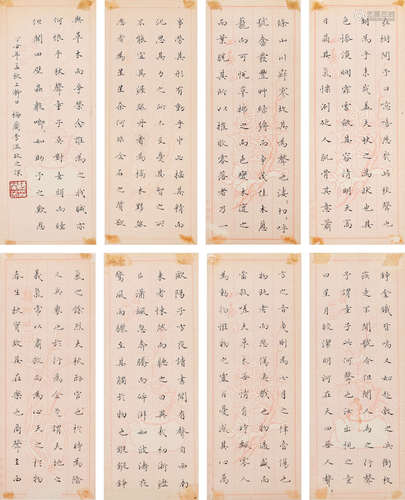 在樹間予曰噫嘻悲哉此秋聲也
胡為乎來哉蓋夫秋之為狀也其
色慘淡煙霏雲斂其容清明天高
日晶其氣慄冽砭人肌骨其意蕭
條山川寂寥故其為聲也淒切呼
號奮發豐草綠縟而爭茂佳木蔥
蘢而可悅草拂之而色變木遭之
而葉脫其所以摧敗零落者乃一
事勞其形有動乎中必搖其精而
況思其力之所不及憂其智之所
不能宜其渥然丹者為槁木黟然
黑者為星星奈何非金石之質欲
與草木而爭榮念誰為之戕賊亦
何恨乎秋聲童子莫對垂頭而睡
但聞四壁蟲聲唧唧如助予之歎息
年孟秋上澣日
錚金鐵皆鳴又如赴敵之兵銜枚
疾走不聞號令但聞人馬之行聲
予謂童子此何聲也汝出視之童
子曰星月皎潔明河在天四無人聲聲
方之音夷則為七月之律商傷也
物既老而悲傷夷戮也物過盛而
當殺嗟夫草木無情有時飄零人
為動物惟物之靈百憂感其心萬
歐陽子方夜讀書聞有聲自西南
來者悚然而聽之曰異哉初淅瀝
以瀟颯忽奔騰而砰湃如波濤夜
驚風雨驟至其觸於物也鏦鏦錚
氣之餘烈夫秋刑官也於時為陰
又兵象也於行為金是謂天地之
義氣常以肅殺而為心天之於物
春生秋實故其在樂也商聲主西